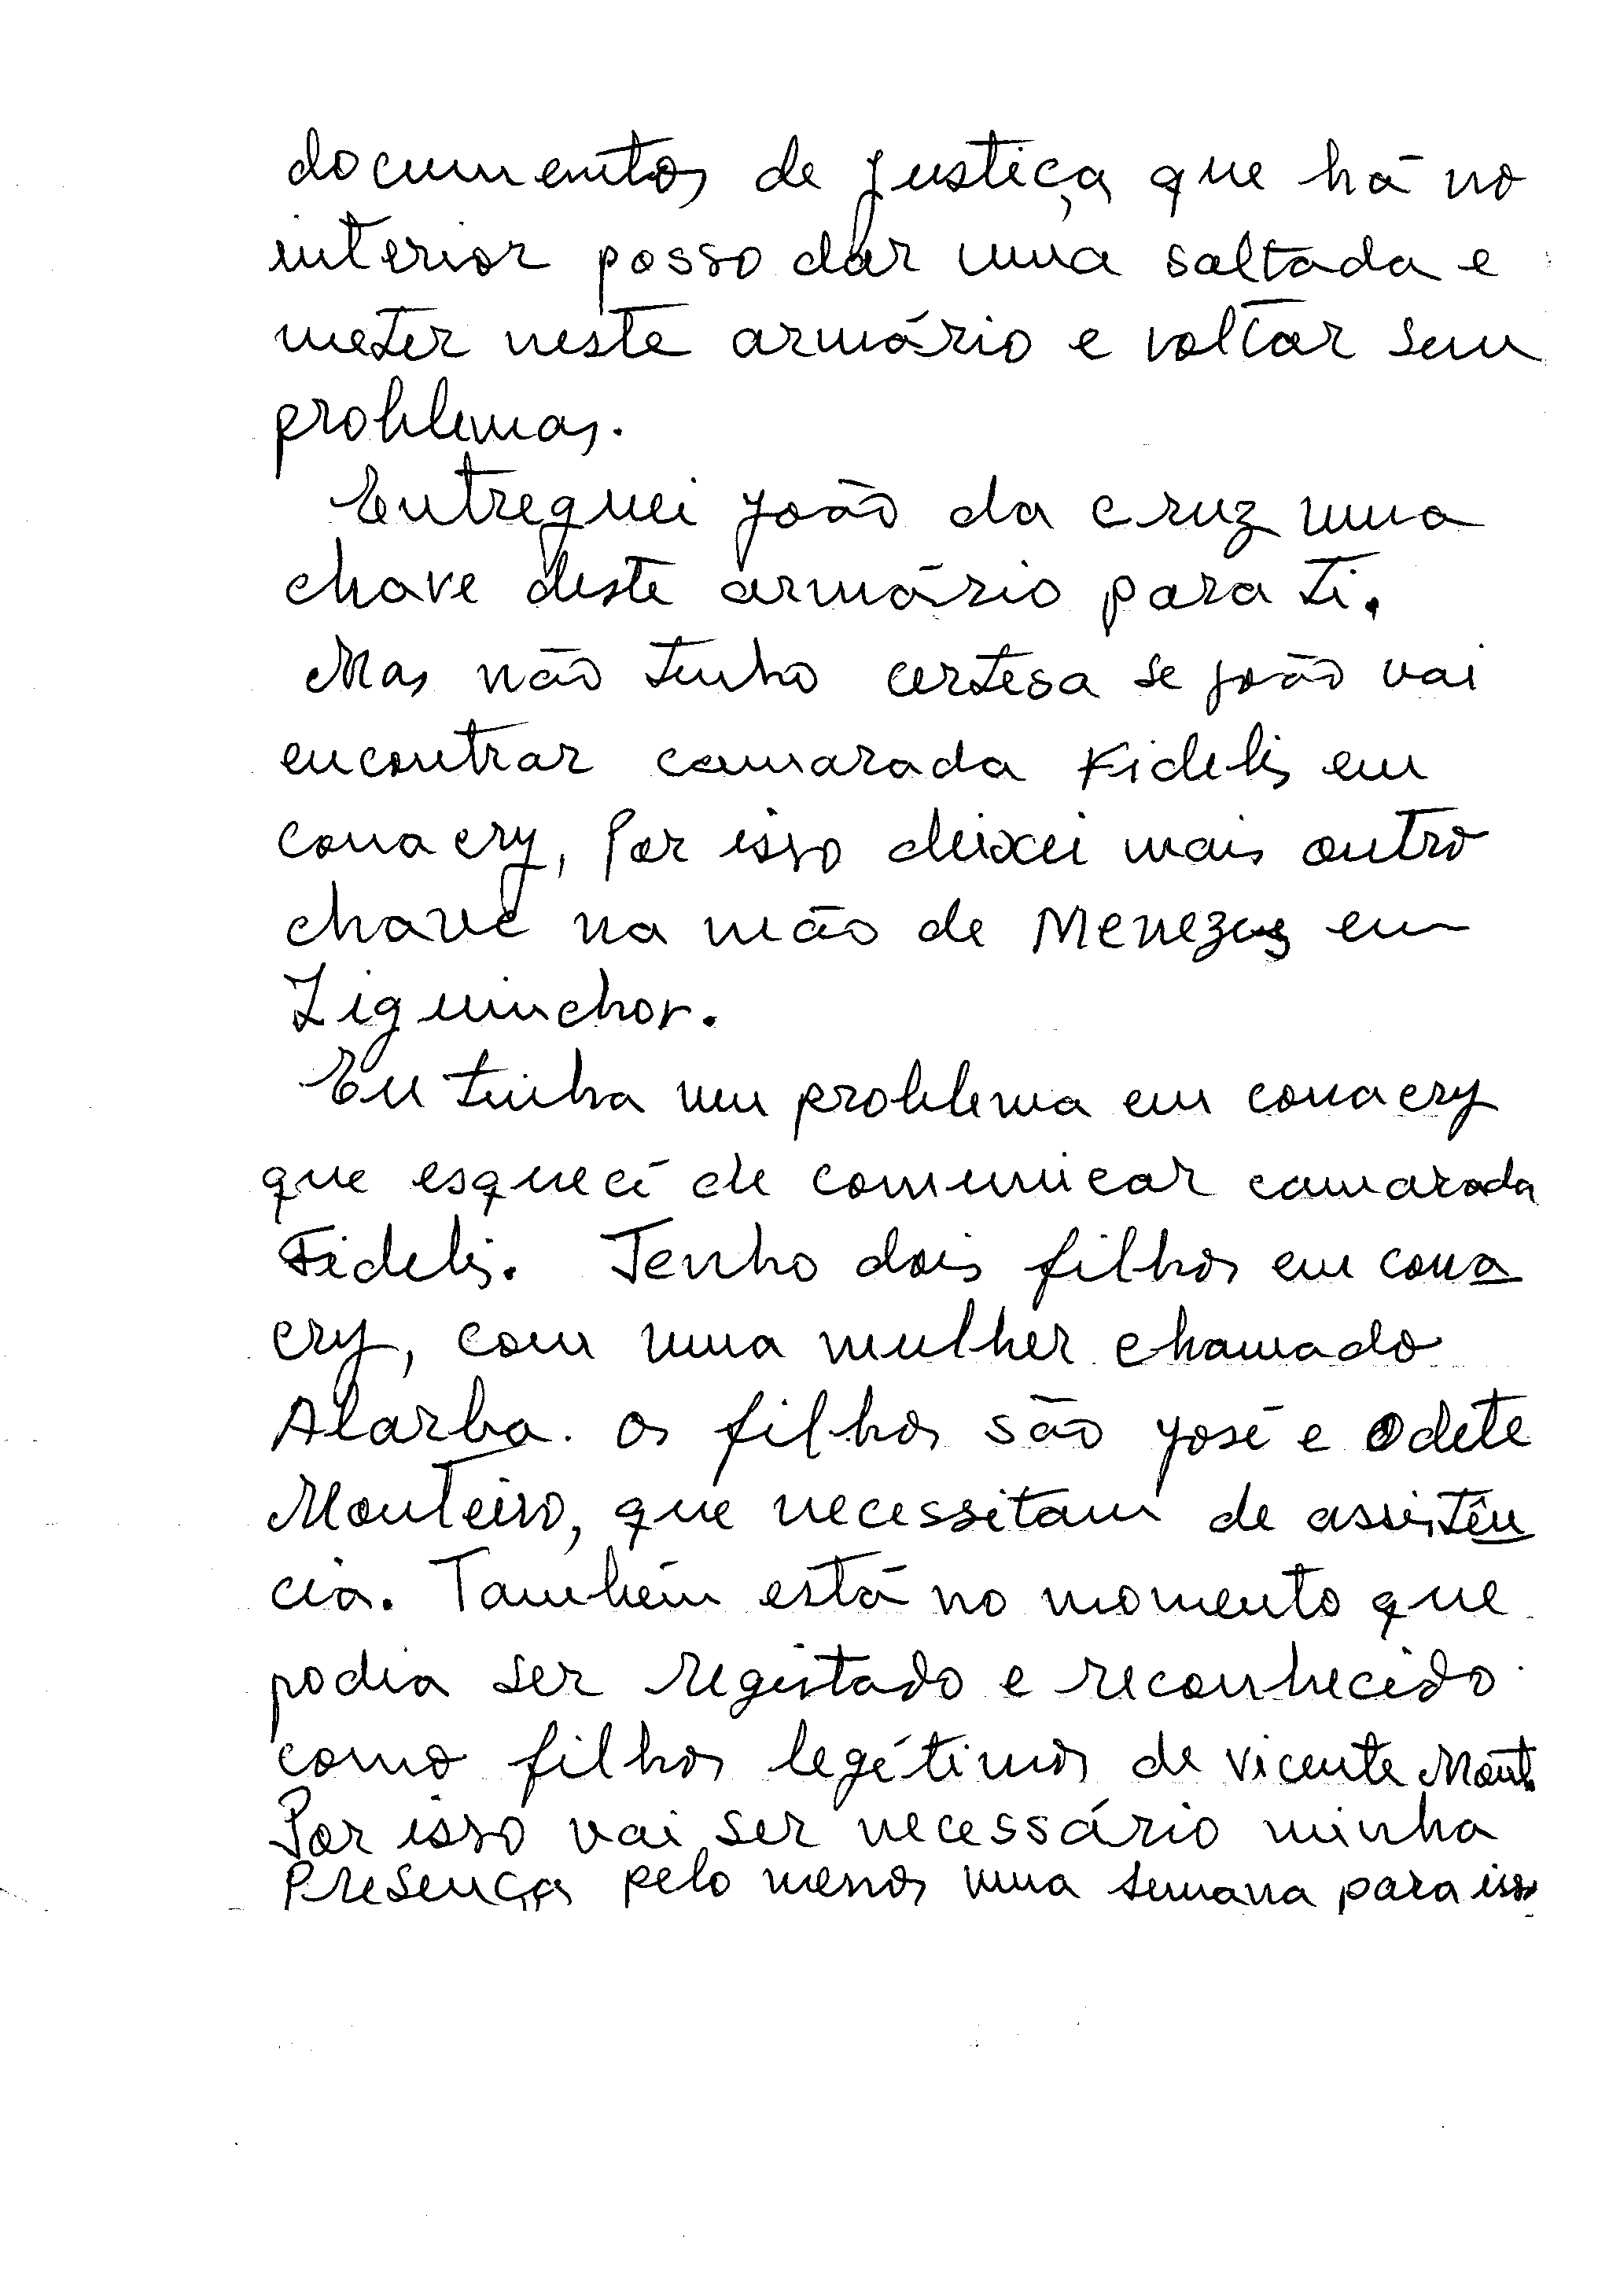 documentos de justiça que há no
interior posso dar uma saltada e
meter neste armário e voltar sem
problemas.
Entreguei João da cruz uma
chave deste armário para ti.
Mas não tenho certesa se João vai
encontrar camarada Fidelis em
conacry, Por isso deixei mais outro
chave na mão de Menezes em
Ziguinchor.
Eu tinha um problema em conacry
que esquecí de comunicar camarada
Fidelis. Tenho dois filhos em cona
cry, com uma mulher chamado
Alarba. Os filhos são José e Odete
Monteiro, que necessitam de assistên
cia. Também está no momento que
podia ser registado e reconhecido
como filhos legétimos de Vicente Mont.
Por isso vai ser necessário minha
presença pelo menos uma semana para isso